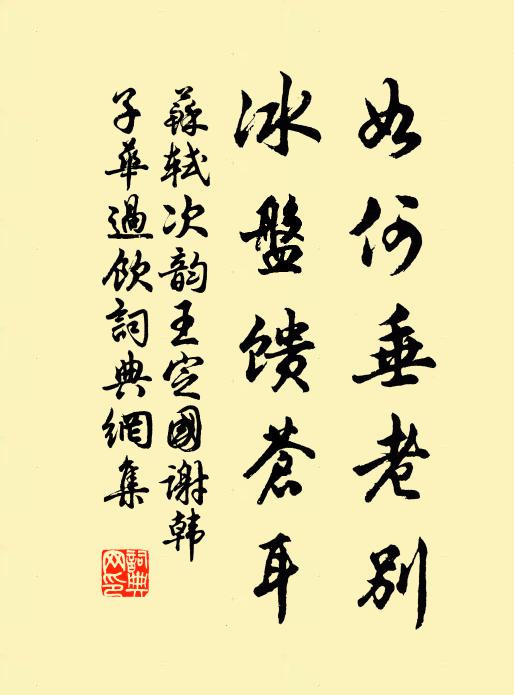 如何垂老别
冰盤馈蒼耳
蘇軾次韵王定國谢韩
子華過飲詞典網集
詞典网印